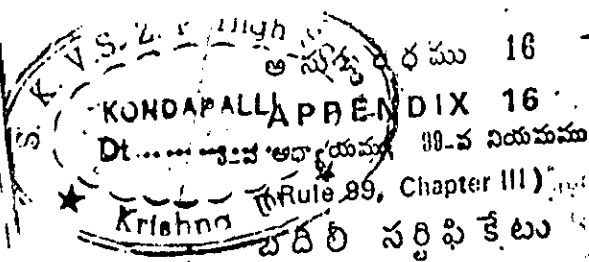 S. K. V. S. Z. P. High
KONDAPALLI
Dt.
Krishna
అనుబంధము 16
APPENDIX 16
3-వ అధ్యాయము 89-వ నియమము
(Rule 89, Chapter III)
బదిలీ సర్టిఫికేటు